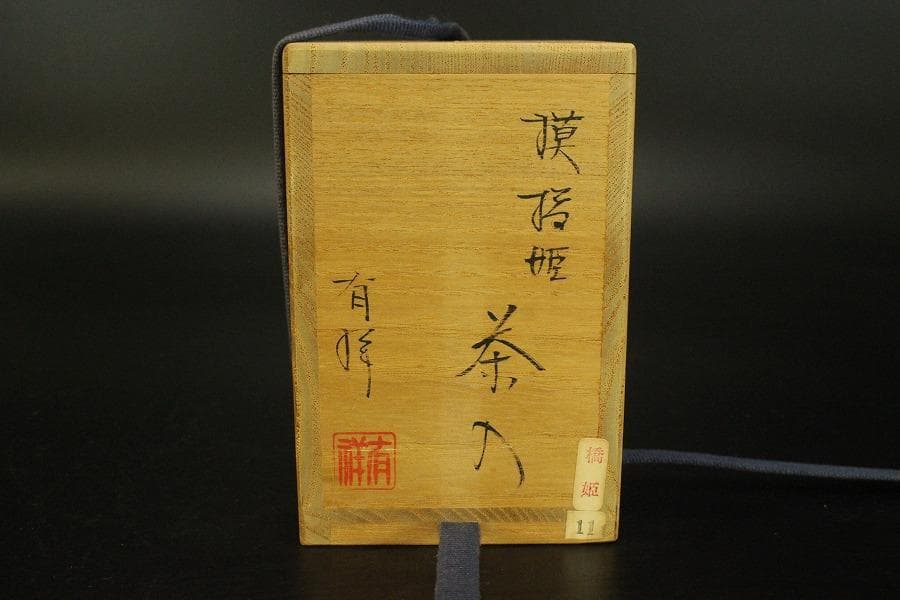 摸橋姫
茶入
有祥
有祥
橋姫
11